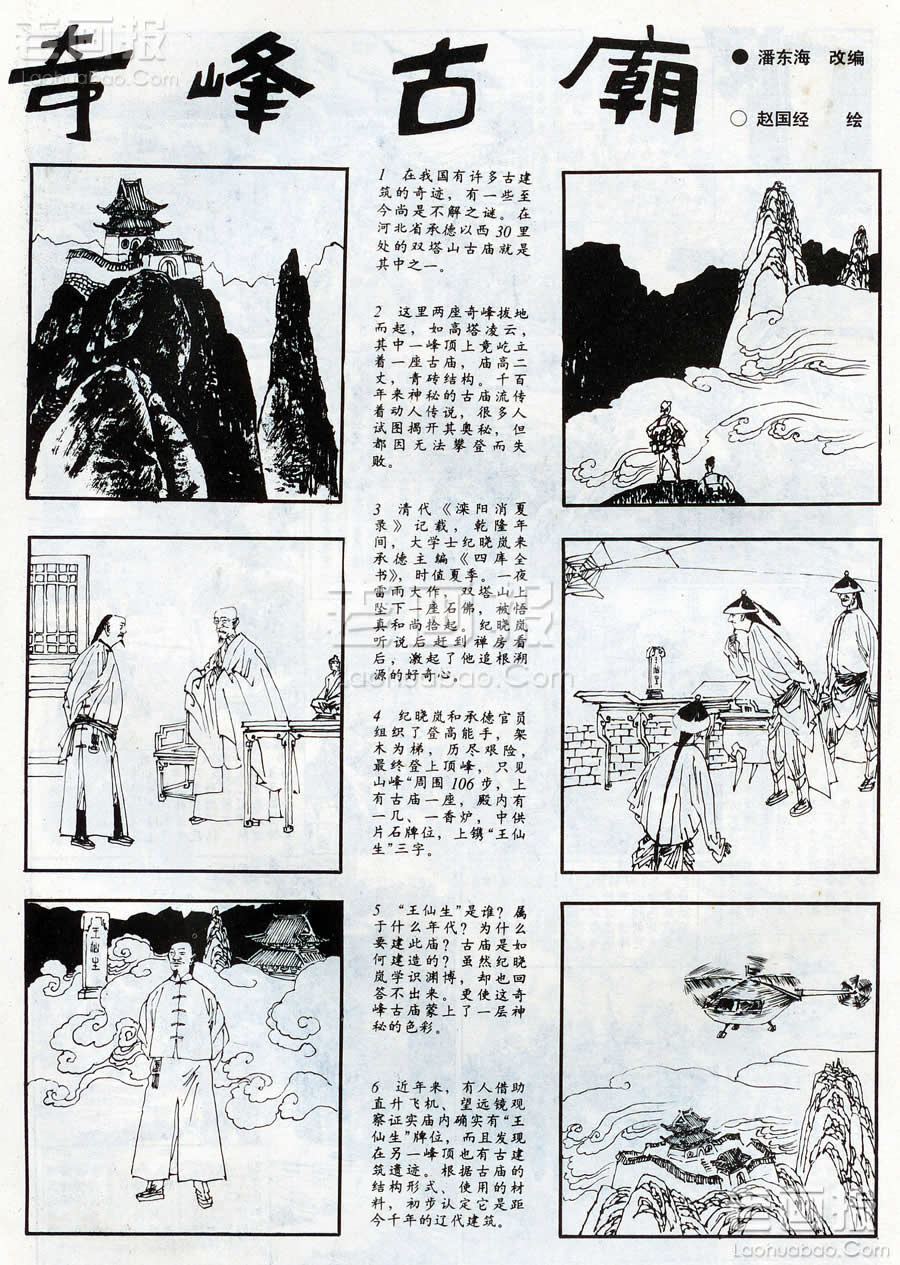 老画报
Laohuabao.Com
奇峰古廟
● 潘东海 改编
○ 赵国经 绘
1 在我国有许多古建
筑的奇迹，有一些至
今尚是不解之谜。在
河北省承德以西30里
处的双塔山古庙就是
其中之一。
2 这里两座奇峰拔地
而起，如高塔凌云，
其中一峰顶上竟屹立
着一座古庙，庙高二
丈，青砖结构。千百
年来神秘的古庙流传
着动人传说，很多人
试图揭开其奥秘，但
都因无法攀登而失
败。
3 清代《滦阳消夏
录》记载，乾隆年
间，大学士纪晓岚来
承德主编《四库全
书》，时值夏季。一夜
雷雨大作，双塔山上
坠下一座石佛，被悟
真和尚拾起。纪晓岚
听说后赶到禅房看
后，激起了他追根溯
源的好奇心。
老画报
Laohuabao.Com
4 纪晓岚和承德官员
组织了登高能手，架
木为梯，历尽艰险，
最终登上顶峰，只见
山峰“周围106步，上
有古庙一座，殿内有
一几、一香炉，中供
片石牌位，上镌“王仙
生”三字。
王仙生
5 “王仙生”是谁？属
于什么年代？为什么
要建此庙？古庙是如
何建造的？虽然纪晓
岚学识渊博，却也回
答不出来。更使这奇
峰古庙蒙上了一层神
秘的色彩。
6 近年来，有人借助
直升飞机、望远镜观
察证实庙内确实有“王
仙生”牌位，而且发现
在另一峰顶也有古建
筑遗迹。根据古庙的
结构形式、使用的材
料，初步认定它是距
今千年的辽代建筑。
老画报
Laohuabao.Com